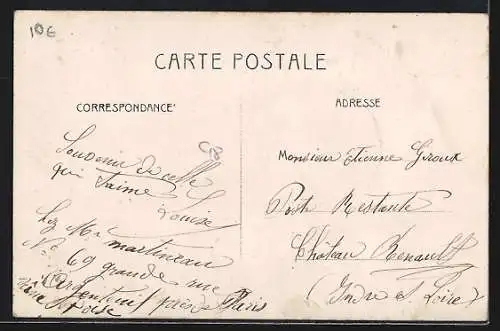 10€
CARTE POSTALE
CORRESPONDANCE
ADRESSE
CB
Souvenir de celle
qui t'aime
Louise
Chez Mr martineau
No 69 grande rue
Argenteuil près Paris
Seine et Oise
Monsieur Etienne Giroux
Poste Restante
Château Renault
(Indre et Loire)